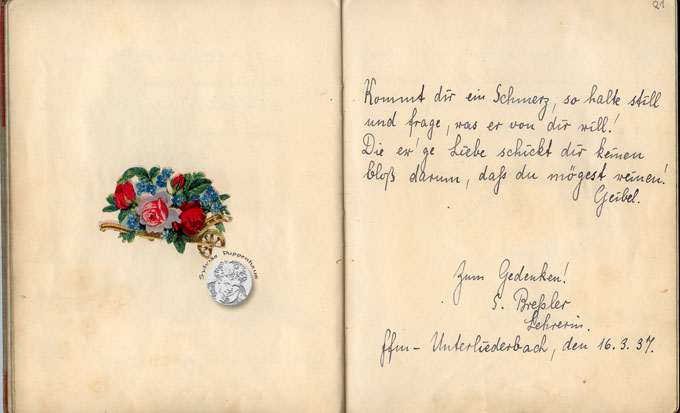 Sylvias Puppenhaus
21
Kommt dir ein Schmerz, so halte still
und frage, was er von dir will!
Die ew'ge Liebe schickt dir keinen
bloß darum, daß du mögest weinen!
Geibel.
Zum Gedenken!
S. Breßler
Lehrerin.
Ffm - Unterliederbach, den 16.3.37.